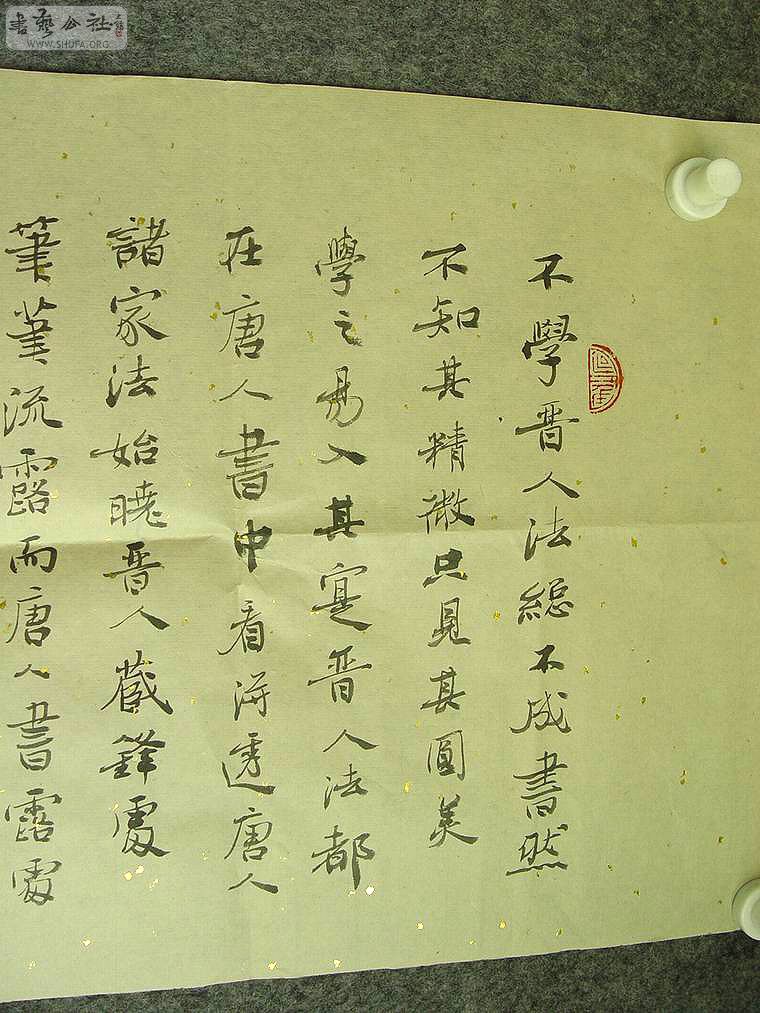 不學晋人法總不成書然
不知其精微只見其圓美
學之易入其寔晋人法都
在唐人書中看得透唐人
諸家法始曉晋人藏鋒處
筆筆流露而唐人書露處
書藝公社
WWW.SHUFA.ORG